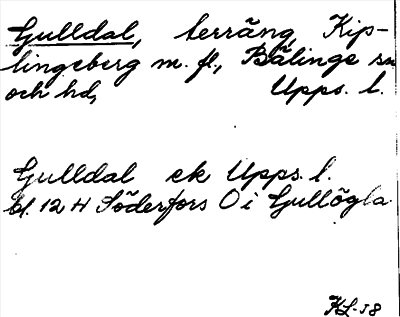 Gulldal, terräng, Kip-
lingeberg m. fl., Bälinge sn
och hd, Upps. l.
Gulldal ek Upps. l.
bl. 12 H Söderfors O i Gullögla
KL-58